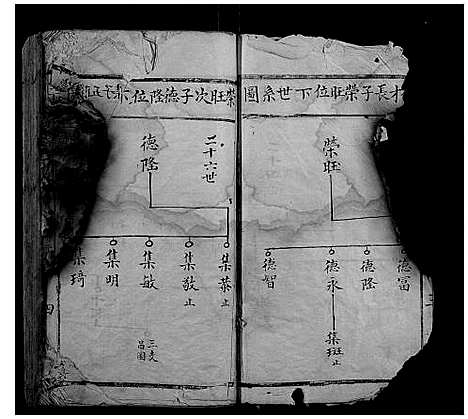 才長子榮旺位下世系圖
榮旺
德富
德隆
德永
集斑止
德智
榮旺次子德隆位
二十六世
德隆
集恭止
集敬止
集敏
三支昌圖
集明
集琦
四